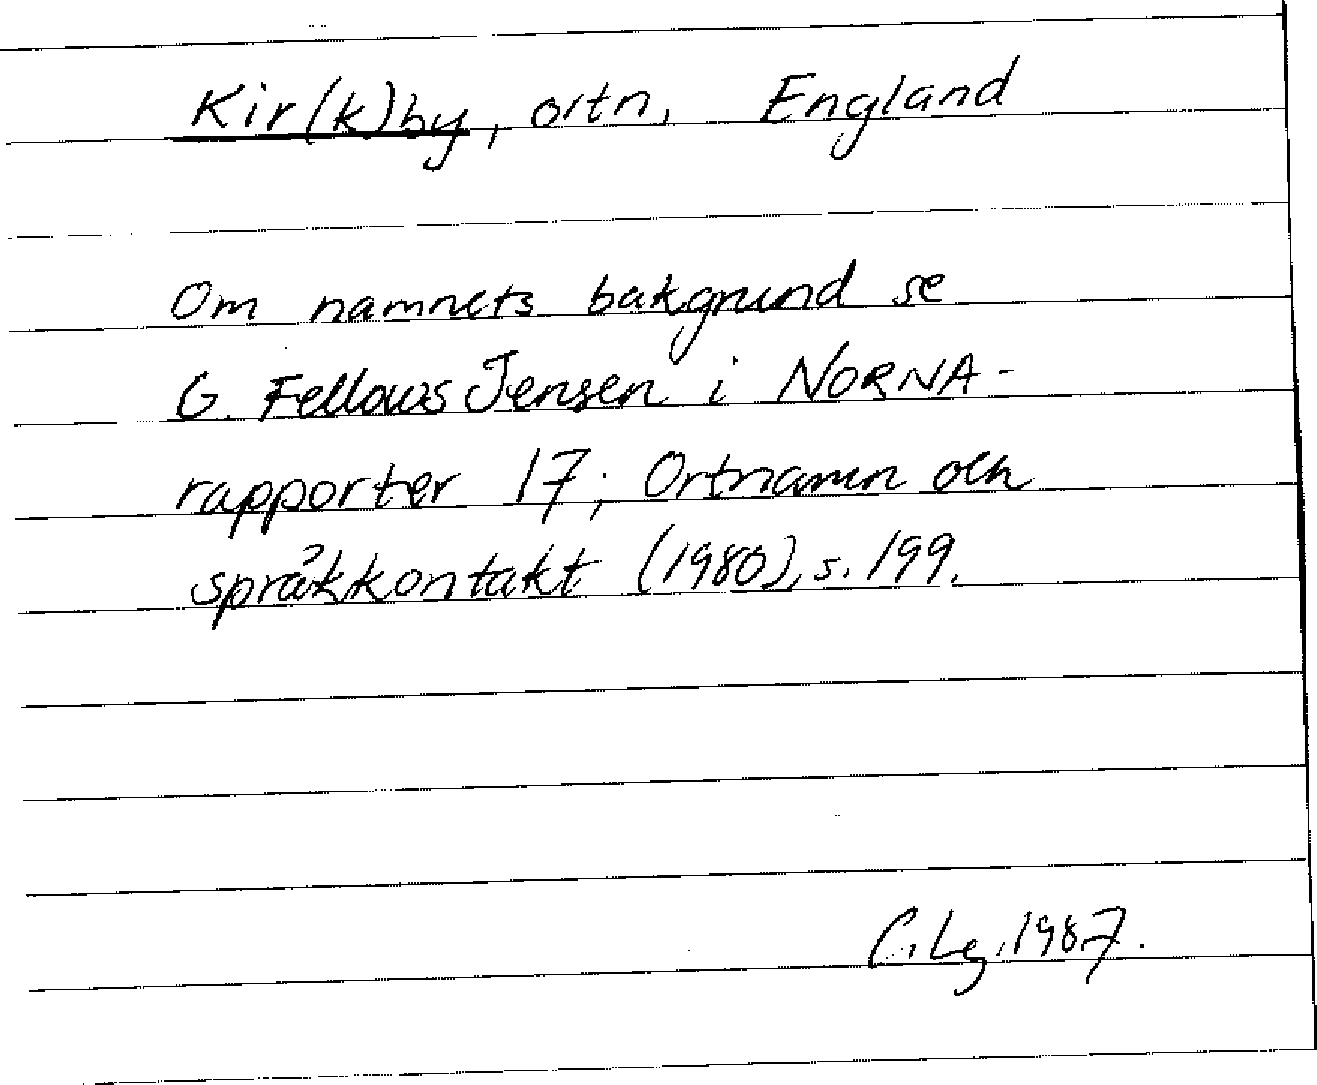 Kir(k)by, ortn, England
Om namnets bakgrund se
G. Fellows Jensen i NORNA-
rapporter 17; Ortnamn och
språkkontakt (1980), s. 199.
C. Lg. 1987.